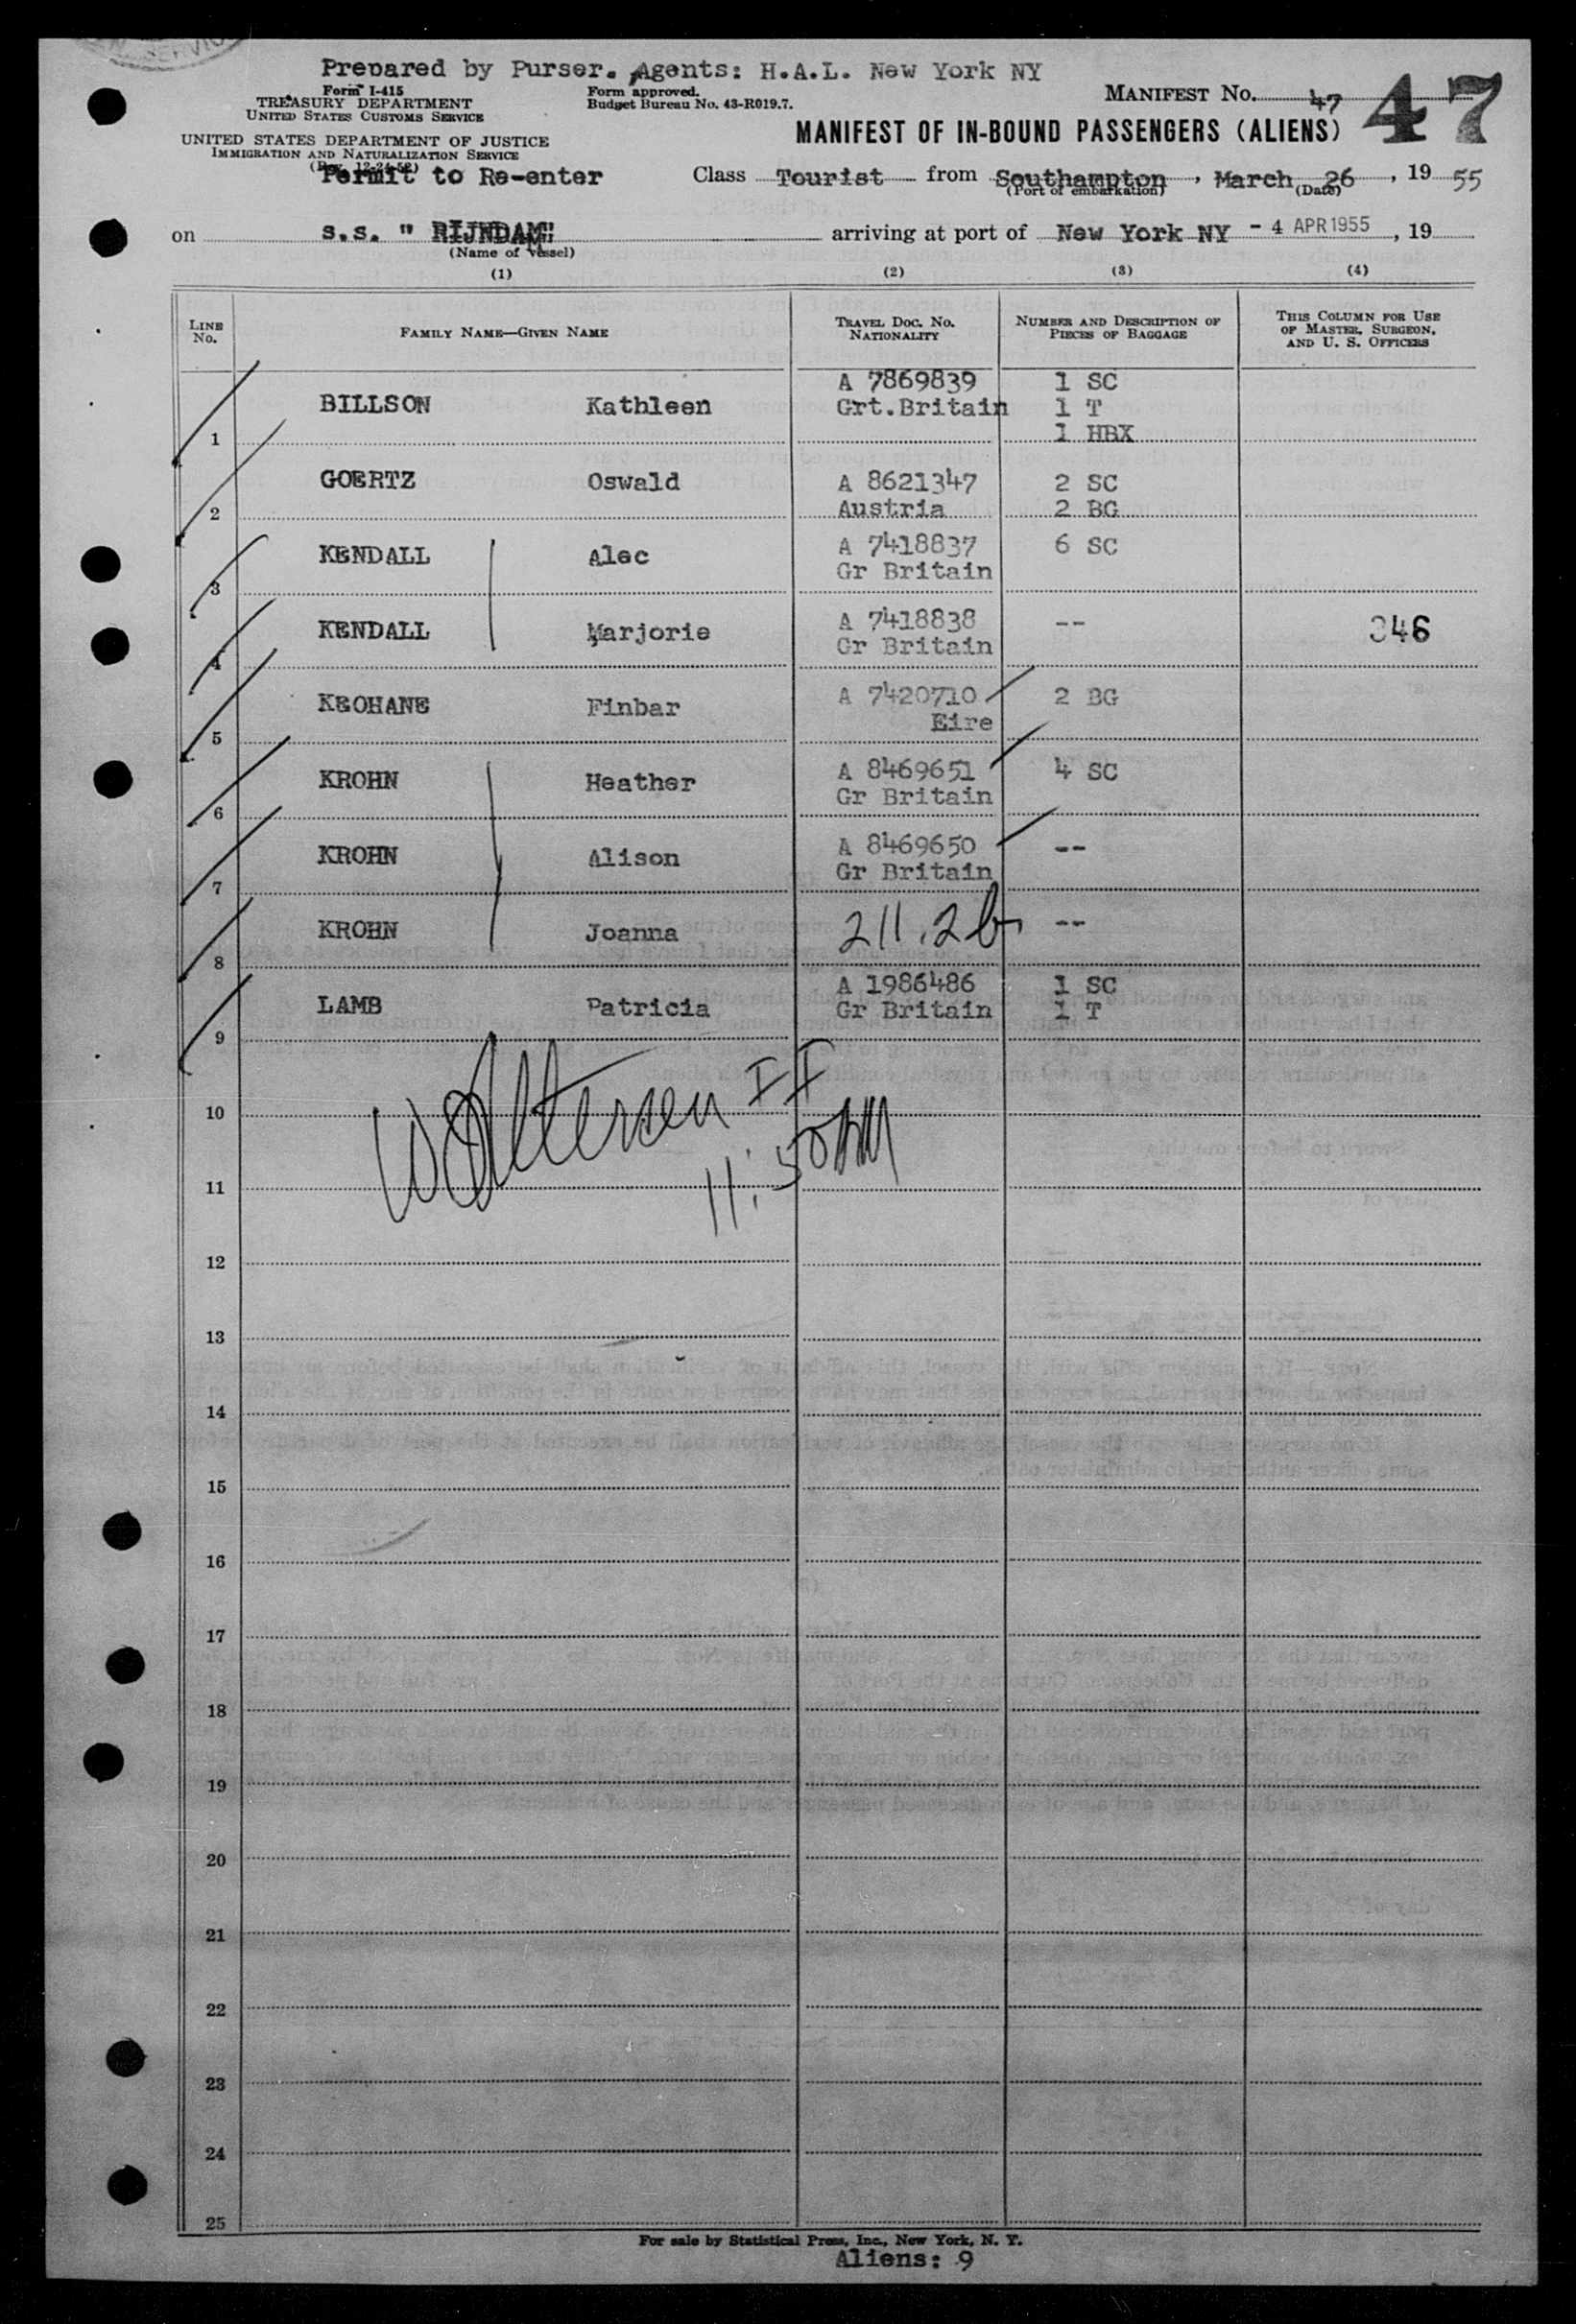 Prepared by Purser. Agents: H.A.L. New York NY
Form I-415
TREASURY DEPARTMENT
UNITED STATES CUSTOMS SERVICE
Form approved.
Budget Bureau No. 43-R019.7.
MANIFEST No. 47
47
UNITED STATES DEPARTMENT OF JUSTICE
IMMIGRATION AND NATURALIZATION SERVICE
(Rev. 12-24-52)
MANIFEST OF IN-BOUND PASSENGERS (ALIENS)
Permit to Re-enter
Class Tourist from Southampton, March 26, 19 55
(Port of embarkation) (Date)
on s.s. " RIJNDAM" arriving at port of New York NY - 4 APR 1955, 19
(Name of vessel)
(1) (2) (3) (4)
LINE No. FAMILY NAME—GIVEN NAME TRAVEL DOC. No. NATIONALITY NUMBER AND DESCRIPTION OF PIECES OF BAGGAGE THIS COLUMN FOR USE OF MASTER, SURGEON, AND U. S. OFFICERS
A 7869839 1 SC
BILLSON Kathleen Grt.Britain 1 T
1 1 HBX
GOERTZ Oswald A 8621347 2 SC
2 Austria 2 BG
KENDALL Alec A 7418837 6 SC
Gr Britain
3
KENDALL Marjorie A 7418838 -- 346
Gr Britain
4
KEOHANE Finbar A 7420710 2 BG
Eire
5
KROHN Heather A 8469651 4 SC
Gr Britain
6
KROHN Alison A 8469650 --
Gr Britain
7
KROHN Joanna 211.2b --
8
A 1986486 1 SC
LAMB Patricia Gr Britain 1 T
9
10
11:50AM
11
12
13
14
15
16
17
18
19
20
21
22
23
24
25
For sale by Statistical Press, Inc., New York, N. Y.
Aliens: 9